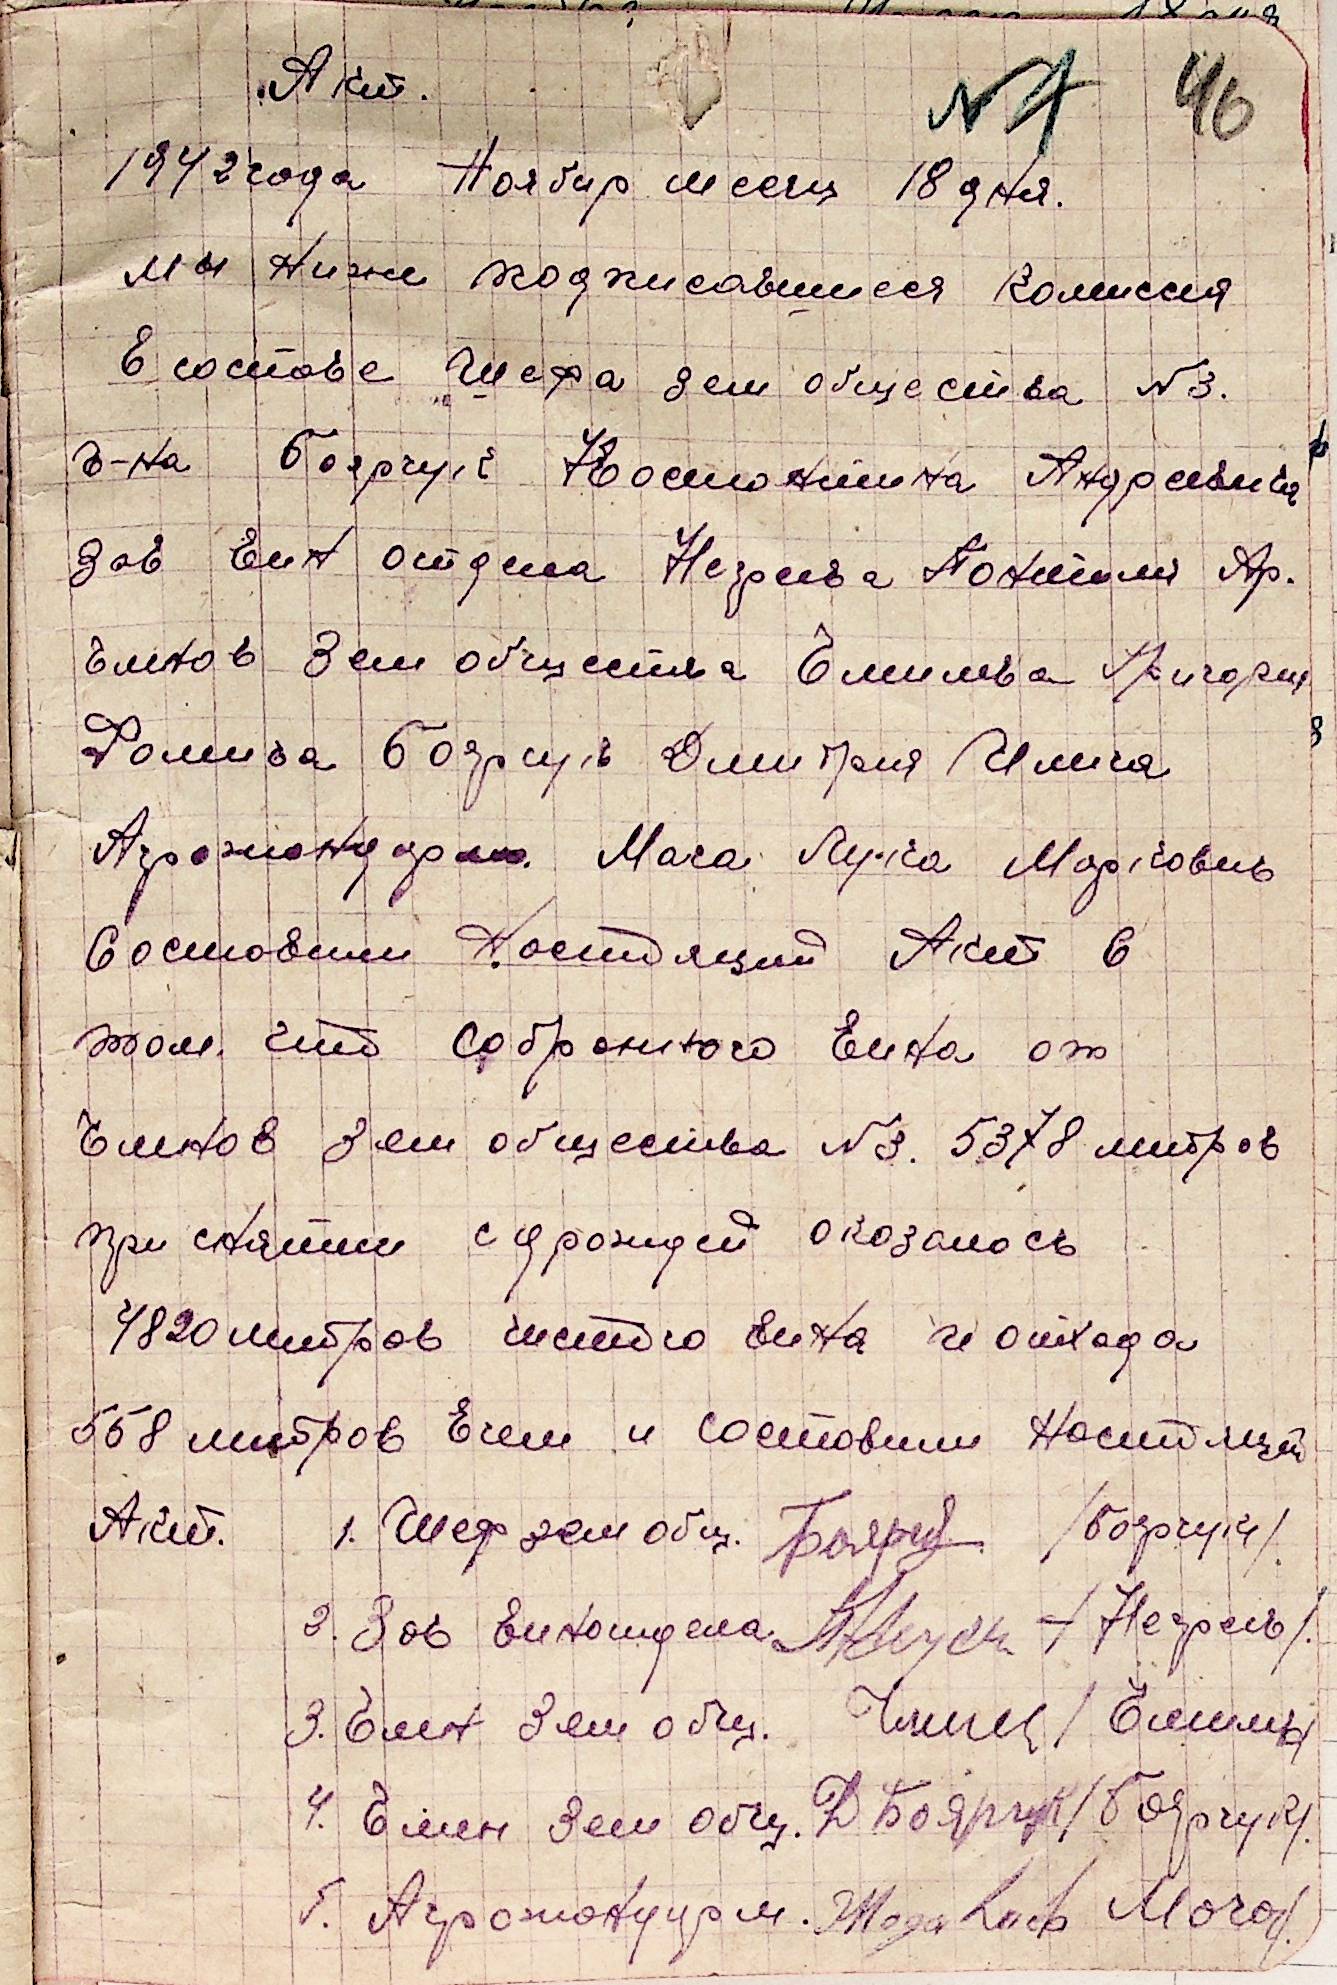 Акт.
№1 46
1942 года Ноябир месец 18 дня.
мы ниже подписавшиеся комиссия
в составе Шефа зем общества №3.
г-на Боярчук Костонтина Андреевича
Зав вин отдела Негрева Понтили Ар.
членов Зем общества Емильва Григория
Фомича Боярчук Дмитрия Илича
Агрожондарм. Мача Лука Маркович
Составили Настоящий Акт в
том что собранного вина от
членов Зем общества №3. 5378 литров
при снятии с дрождей оказалось
4820 литров чистого вина и отхода
558 литров в чем и составили настоящий
Акт. 1. Шеф зем общ. /Боярчук/.
2. Зав винотдела /Негрев/.
3. Член Зем общ. /Емильв/
4. Член Зем общ. Д Боярчук /Боярчук/.
5. Агрожондарм. Мача/.